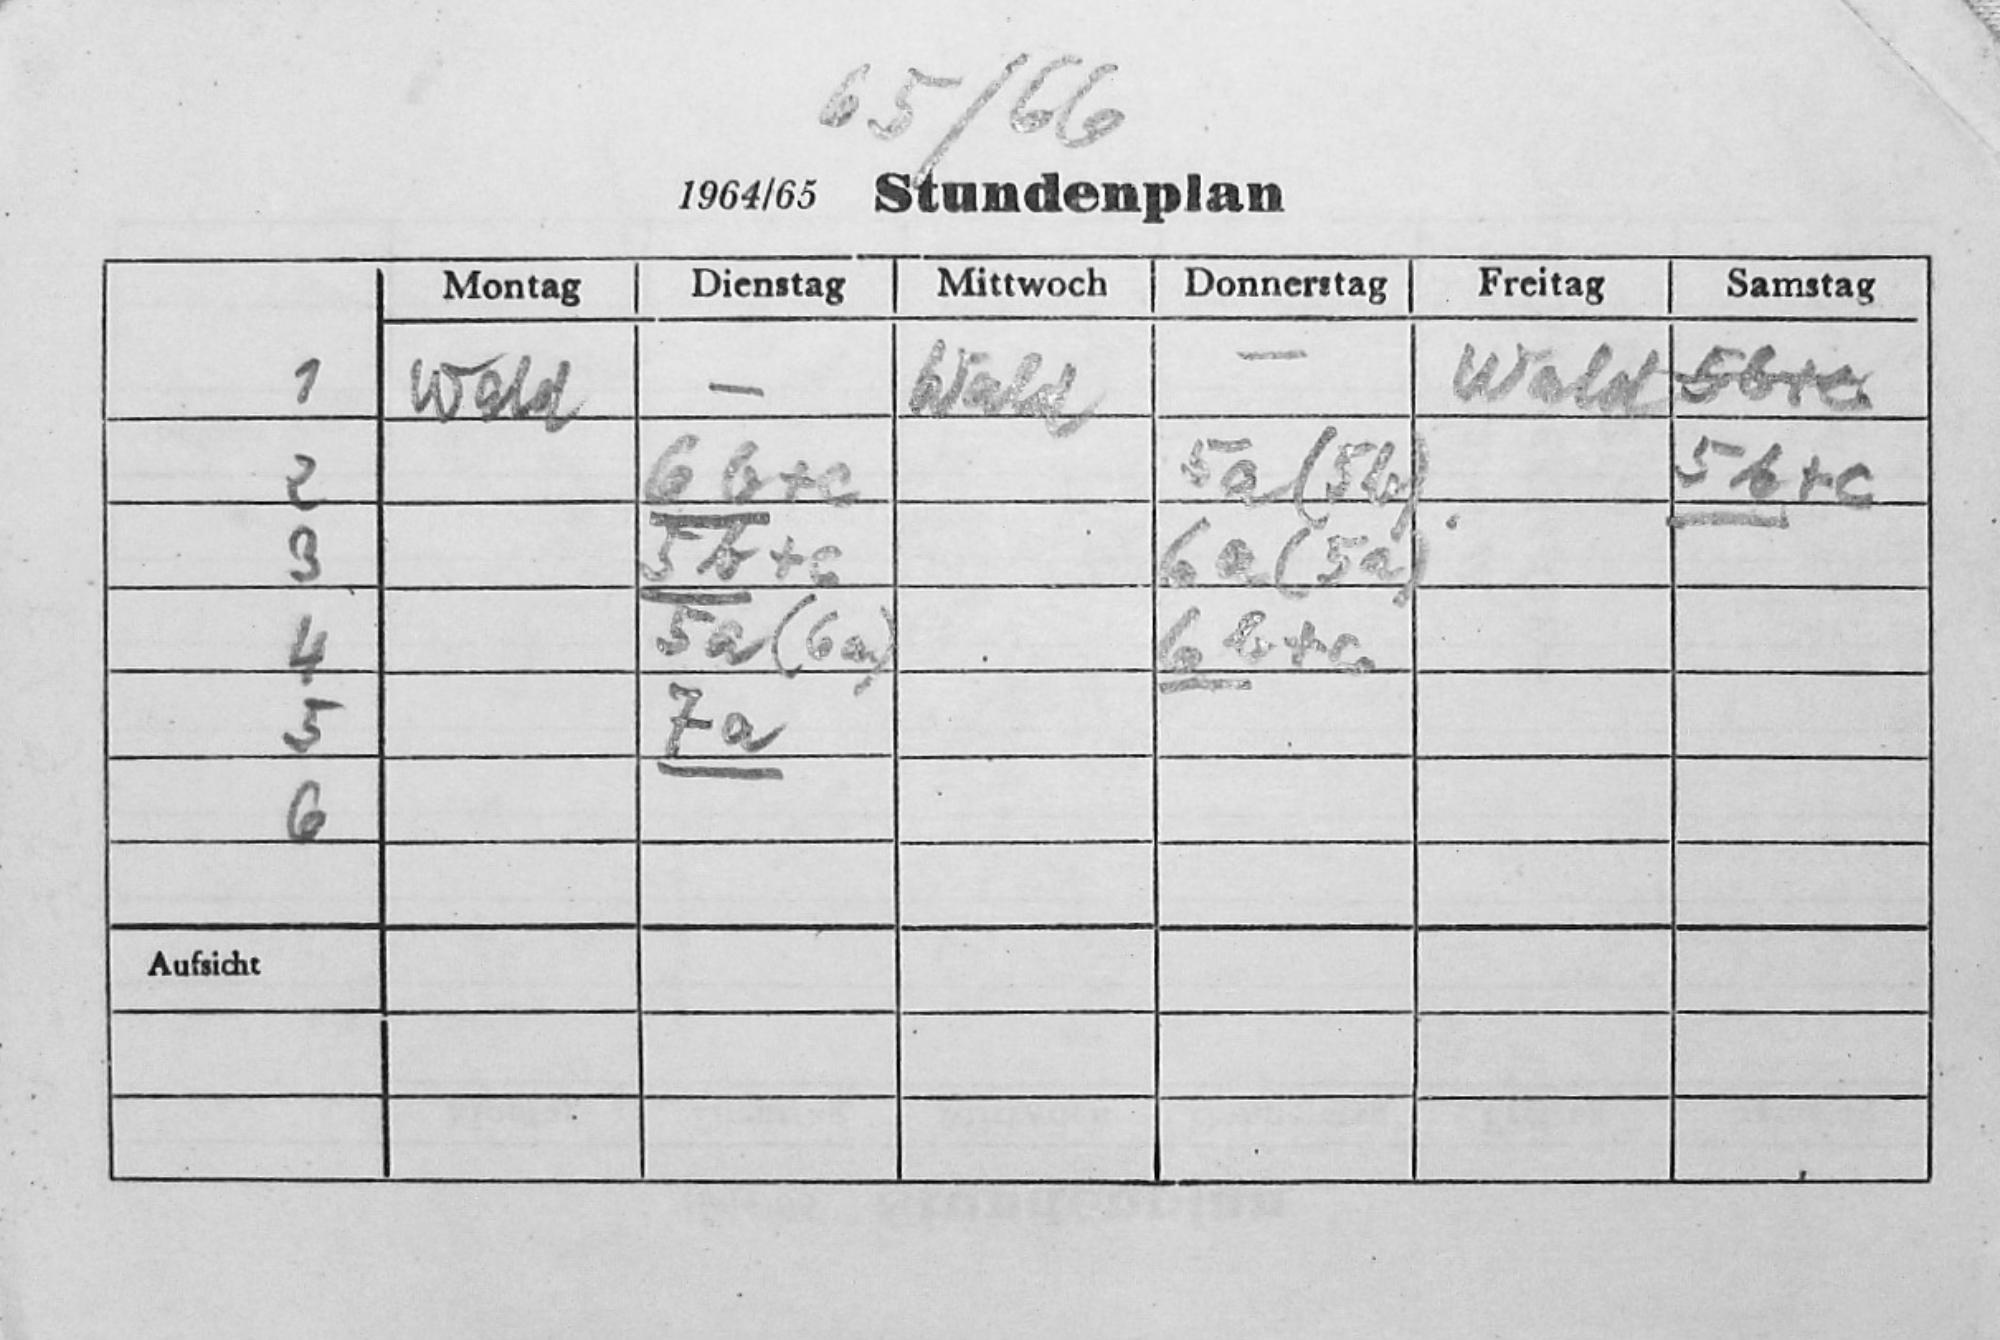 65/66
1964/65 Stundenplan
Montag Dienstag Mittwoch Donnerstag Freitag Samstag
1 Wald — Wald — Wald 5b+c
2 6b+c 5a (5b) 5b+c
3 5b+c 6a (5a)
4 5a (6a) 6b+c
5 7a
6
Aufsicht